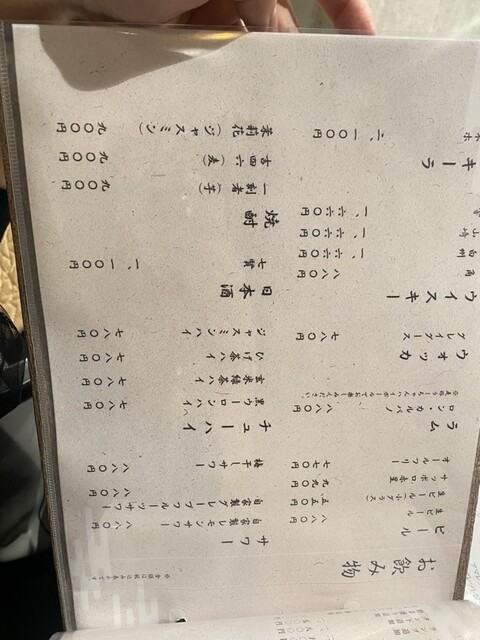 お飲み物
ビール
生ビール 八八〇円
生ビール(小グラス) 五五〇円
サッポロ赤星 九九〇円
オールフリー 七七〇円
ラム
ロン・カルバノ 八八〇円
ウォッカ
グレイグース 七八〇円
ウイスキー
角 八八〇円
白州 一、六六〇円
山崎 一、六六〇円
一、六六〇円
キーラ
二、一〇〇円
サワー
自家製レモンサワー 八八〇円
自家製グレープフルーツサワー 八八〇円
梅干しサワー 八八〇円
チューハイ
黒ウーロンハイ 七八〇円
玄米緑茶ハイ 七八〇円
ひげ茶ハイ 七八〇円
ジャスミンハイ 七八〇円
日本酒
七賢 一、一〇〇円
焼酎
一刻者(芋) 九〇〇円
吉四六(麦) 九〇〇円
茉莉花(ジャスミン) 九〇〇円